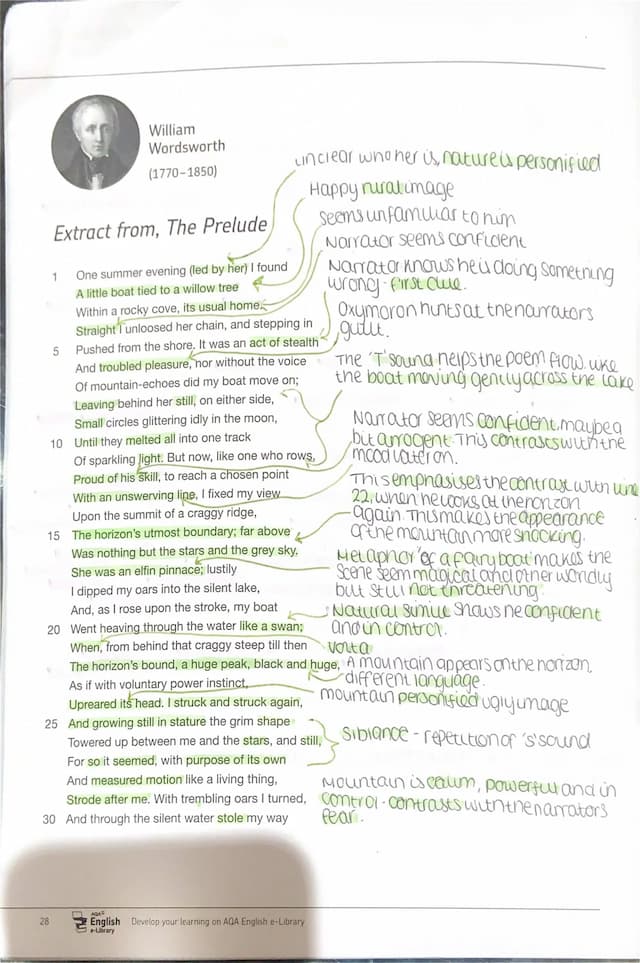 William
Wordsworth
(1770–1850)
unclear who her is, nature is personified
Happy rural image
Seems unfamiliar to him
Narrator seems confident
Extract from, The Prelude
Narrator knows he is doing something
wrong - first clue.
Oxymoron hunts at the narrators
guilt.
The 'T' sound helps the poem flow like
the boat moving gently across the lake
Narrator seems confident, maybe a
bit arrogent. This contrasts with the
mood later on.
This emphasises the contrast with line
22, when he looks at the horizon
again. This makes the appearance
of the mountain more shocking.
Metaphor of a fairy boat makes the
scene seem magical and other worldly
but still not threatening.
Natural simile shows he confident
and in control.
Volta
A mountain appears on the horizon,
different language.
mountain personified ugly image
Sibilance - repetition of 's' sound
Mountain is calm, powerful and in
control - contrasts with the narrators
fear.
1 One summer evening (led by her) I found
A little boat tied to a willow tree
Within a rocky cove, its usual home.
Straight I unloosed her chain, and stepping in
5 Pushed from the shore. It was an act of stealth
And troubled pleasure, nor without the voice
Of mountain-echoes did my boat move on;
Leaving behind her still, on either side,
Small circles glittering idly in the moon,
10 Until they melted all into one track
Of sparkling light. But now, like one who rows,
Proud of his skill, to reach a chosen point
With an unswerving line, I fixed my view
Upon the summit of a craggy ridge,
15 The horizon's utmost boundary; far above
Was nothing but the stars and the grey sky.
She was an elfin pinnace; lustily
I dipped my oars into the silent lake,
And, as I rose upon the stroke, my boat
20 Went heaving through the water like a swan;
When, from behind that craggy steep till then
The horizon's bound, a huge peak, black and huge,
As if with voluntary power instinct,
Upreared its head. I struck and struck again,
25 And growing still in stature the grim shape
Towered up between me and the stars, and still,
For so it seemed, with purpose of its own
And measured motion like a living thing,
Strode after me. With trembling oars I turned,
30 And through the silent water stole my way
28 AQA English e-Library Develop your learning on AQA English e-Library